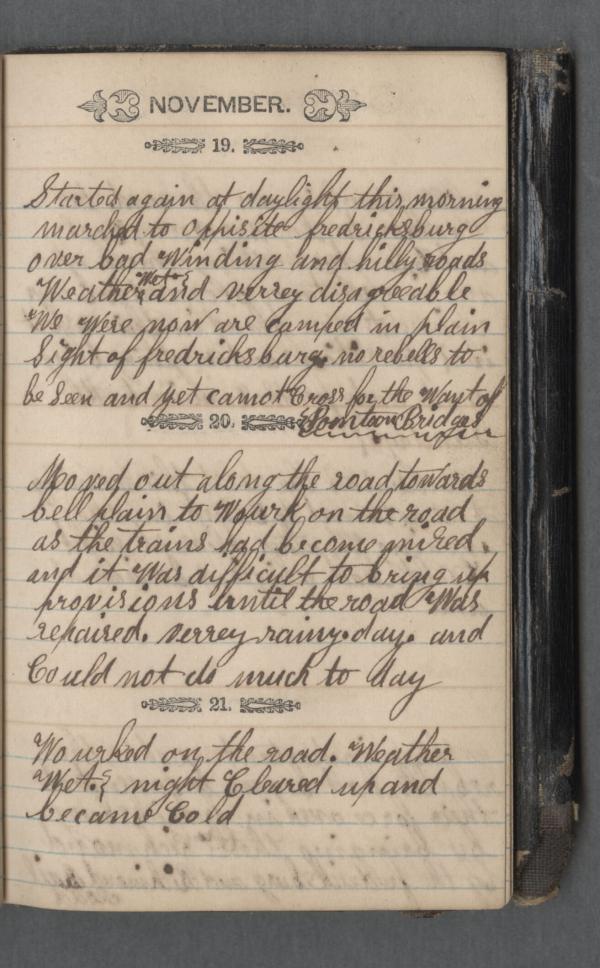 NOVEMBER.
19.
Started again at daylight this morning
marched to oppisite fredricksburg
over bad Winding and hilly roads
Weather Wet & and verrey disagreeable
We Were now are camped in plain
Sight of fredricksburg. no rebells to
be Seen and yet cannot Cross for the Want of
Pontoon Bridges
20.
Moved out along the road towards
bell plain to Wourk on the road
as the trains had become mired
and it Was difficult to bring up
provisions untill the road Was
repaired. verrey rainy. day. and
Could not do much to day
21.
Wourked on the road. Weather
Wet. & night Cleared up and
became Cold